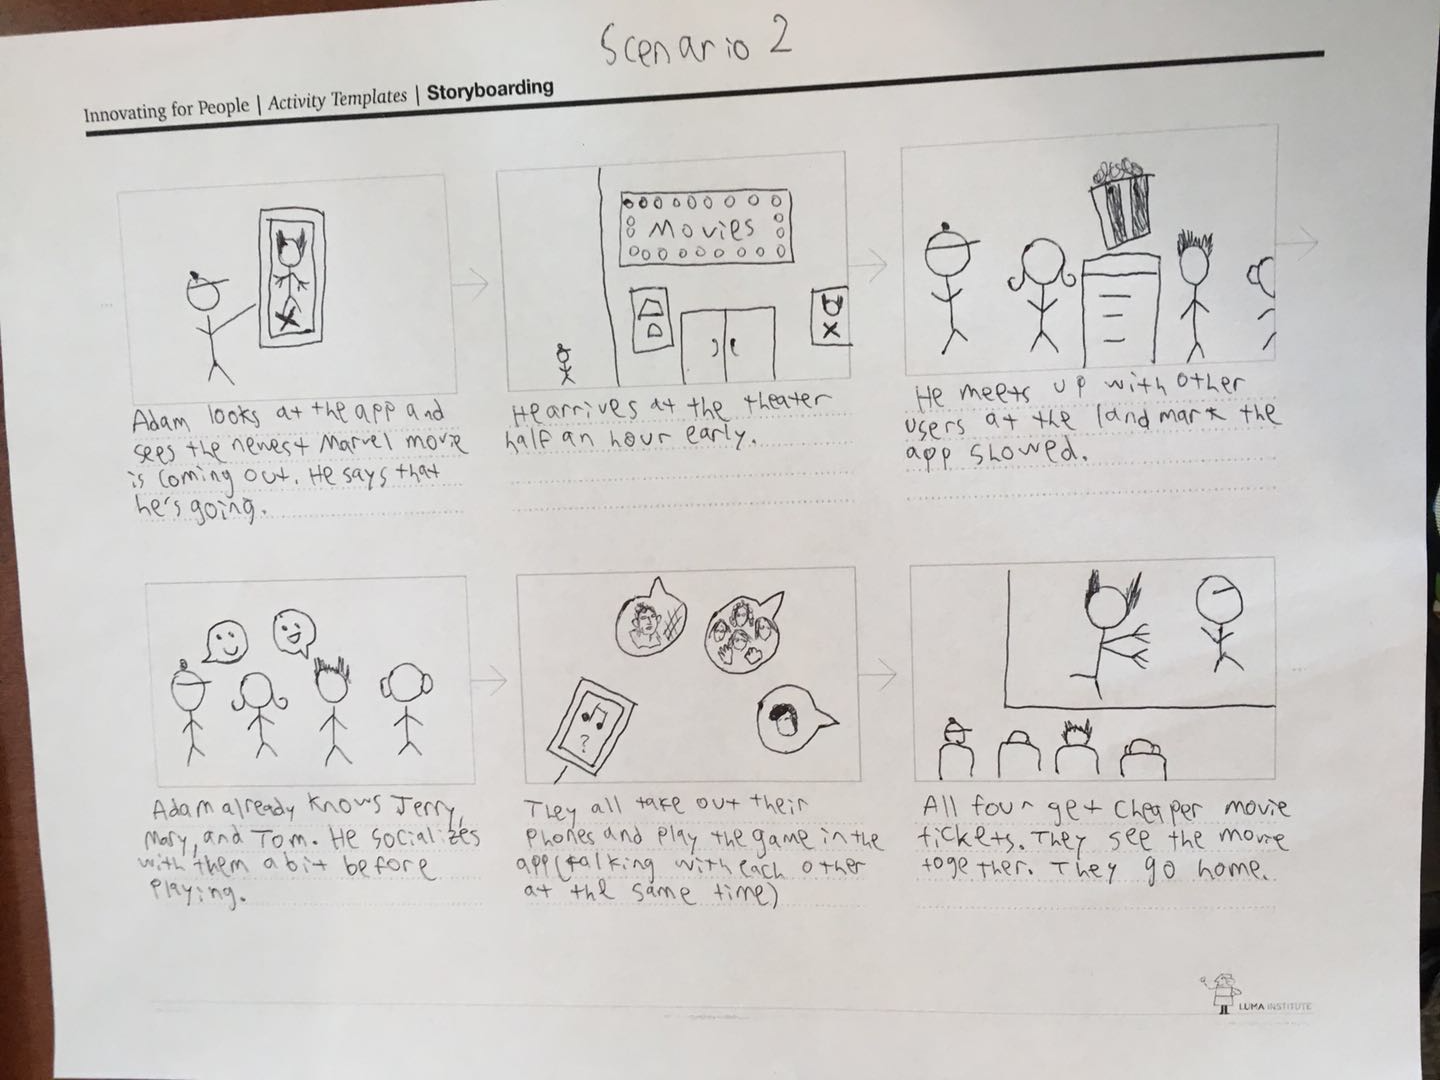 Scenario 2
Innovating for People | Activity Templates | Storyboarding
Movies
Adam looks at the app and
sees the newest Marvel movie
is coming out. He says that
he's going.
He arrives at the theater
half an hour early.
He meets up with other
users at the landmark the
app showed.
?
Adam already knows Jerry,
Mary, and Tom. He socializes
with them a bit before
playing.
They all take out their
phones and play the game in the
app (talking with each other
at the same time)
All four get cheaper movie
tickets. They see the movie
together. They go home.
LUMA INSTITUTE